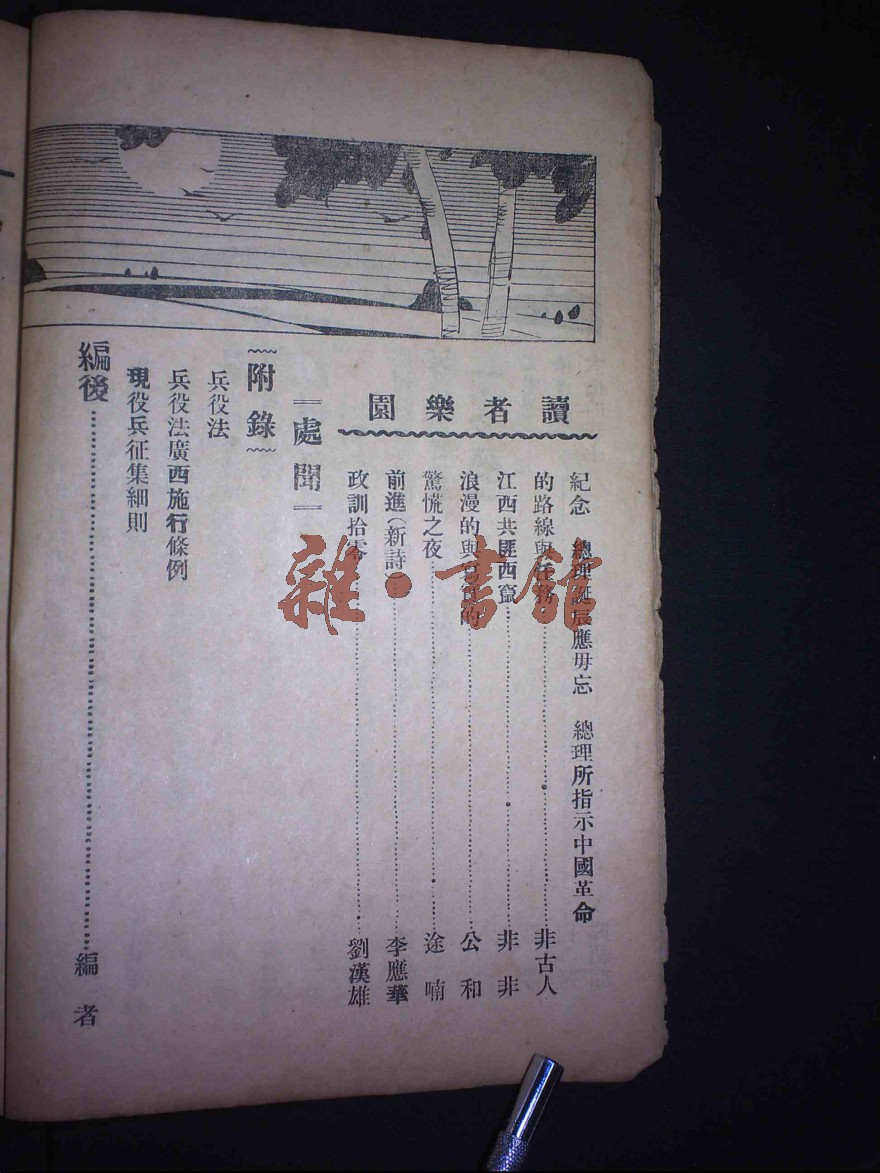 讀者樂園
紀念　總理誕辰應毋忘　總理所指示中國革命
的路線與任務……非古人
江西共匪西竄……非非
浪漫的與寫實的……公和
驚慌之夜……途喃
前進(新詩)……李應華
政訓拾零……劉漢雄
處聞
附錄
兵役法
兵役法廣西施行條例
現役兵征集細則
編後……編者
雜·書館